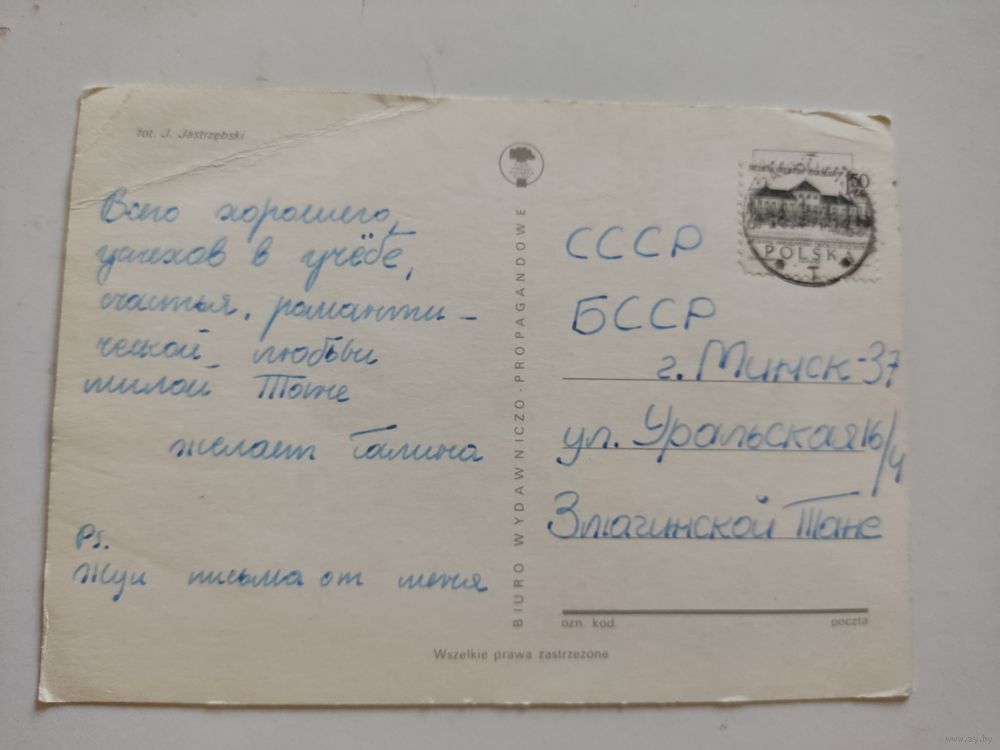 fot. J. Jastrzębski
Всего хорошего,
успехов в учёбе,
счастья, романти-
ческой любви
милой Тане
желает Галина
Ps.
Жди письма от меня
BIURO WYDAWNICZO-PROPAGANDOWE
50
POLSKA
СССР
БССР
г. Минск-37
ул. Уральская 16/4
Злюгинской Тане
ozn. kod.
poczta
Wszelkie prawa zastrzeżone
www.ay.by